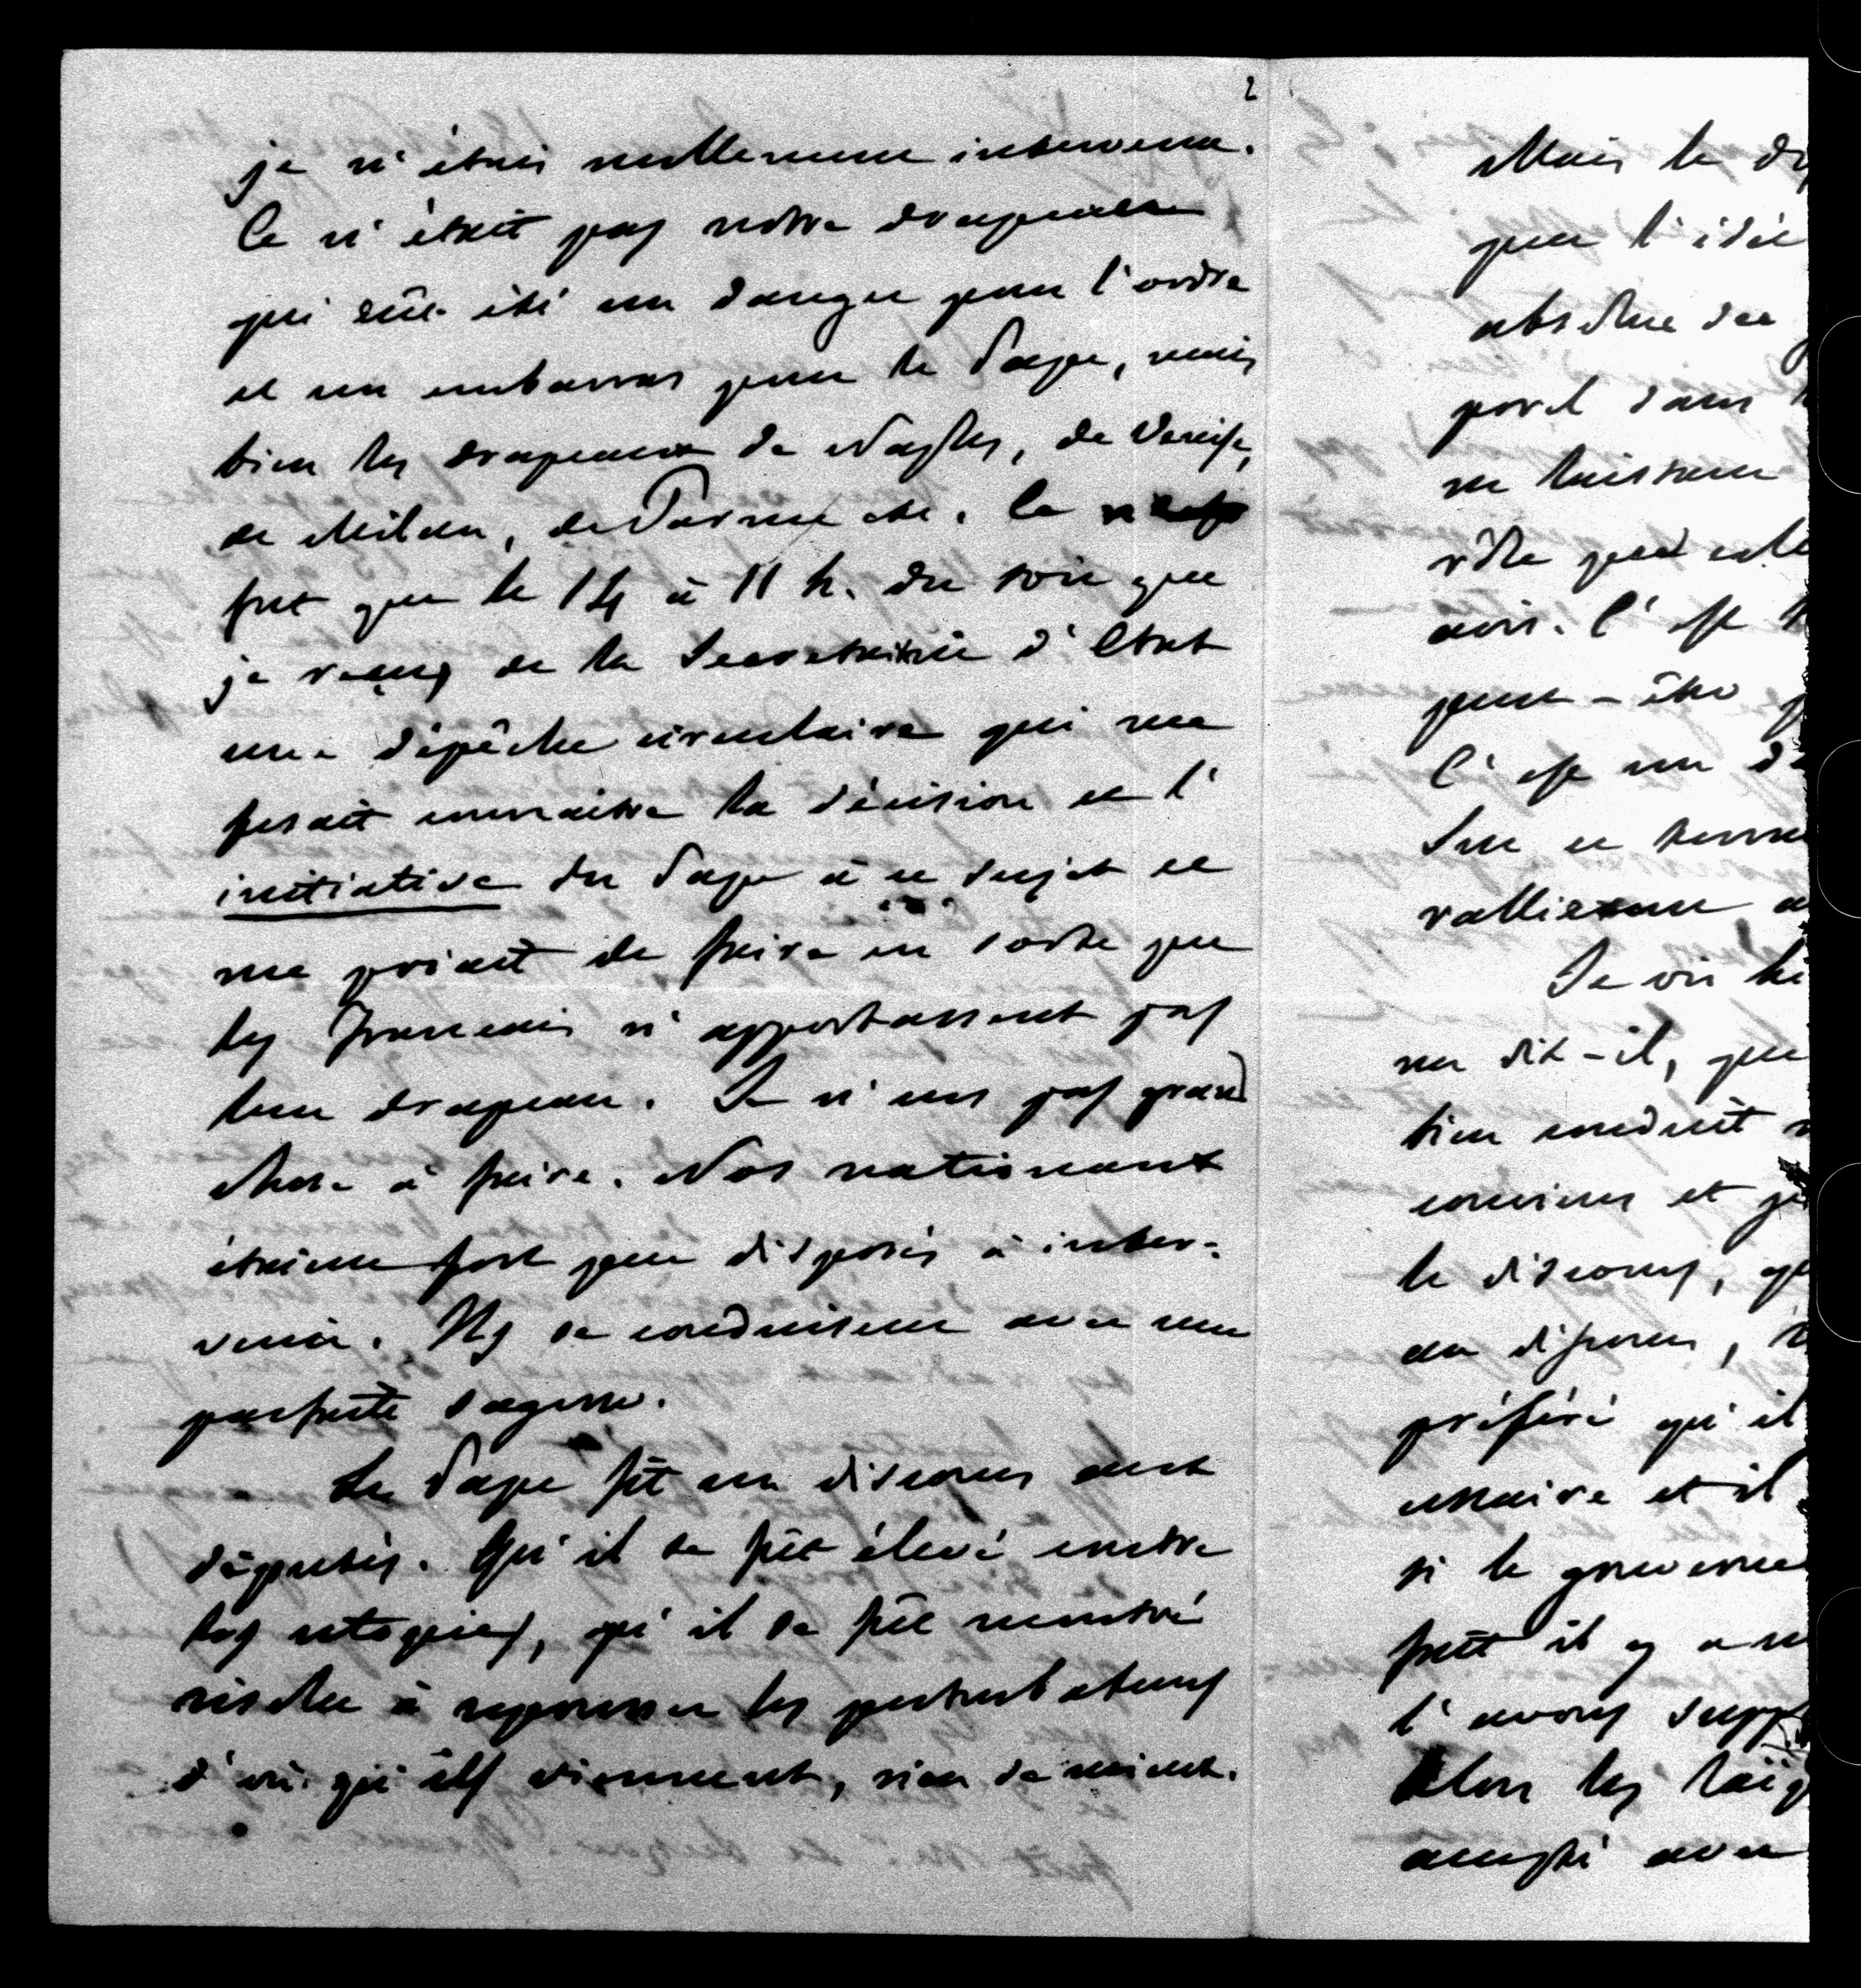 2
je n'étais nullement intervenu.
Ce n'était pas notre drapeau
qui eût été un danger pour l'ordre
et un embarras pour le Pape, mais
bien les drapeaux de Naples, de Venise,
de Milan, de Parme etc. Ce
fut que le 14 à 11 h. du soir que
je reçus de la Secretairie d'Etat
une dépêche circulaire qui me
fesait connaitre la décision et l'
initiative du Pape à ce sujet et
me priait de faire en sorte que
les Francais n'apportassent pas
leur drapeau. Je n'eus pas grand
chose à faire. Nos nationaux
étaient fort peu disposés à inter-
venir. Ils se conduisirent avec une
parfaite sagesse.
Le Pape fit un discours aux
députés. Qu'il se fût élevé contre
les utopies, qu'il se fût montré
résolu à repousser les perturbateurs
d'où qu'ils viennent, rien de mieux.
Mais le
que l'idée
absolue des
dans
ne laissent
rôle
avis. C'est
peut-être
C'est un
Sur ce
Je vis le
me dit-il, que
bien conduit
convins et
le discours,
au
préféré qu'il
et il
si le
fait il y a
l'avons
Alors les
accepté avec